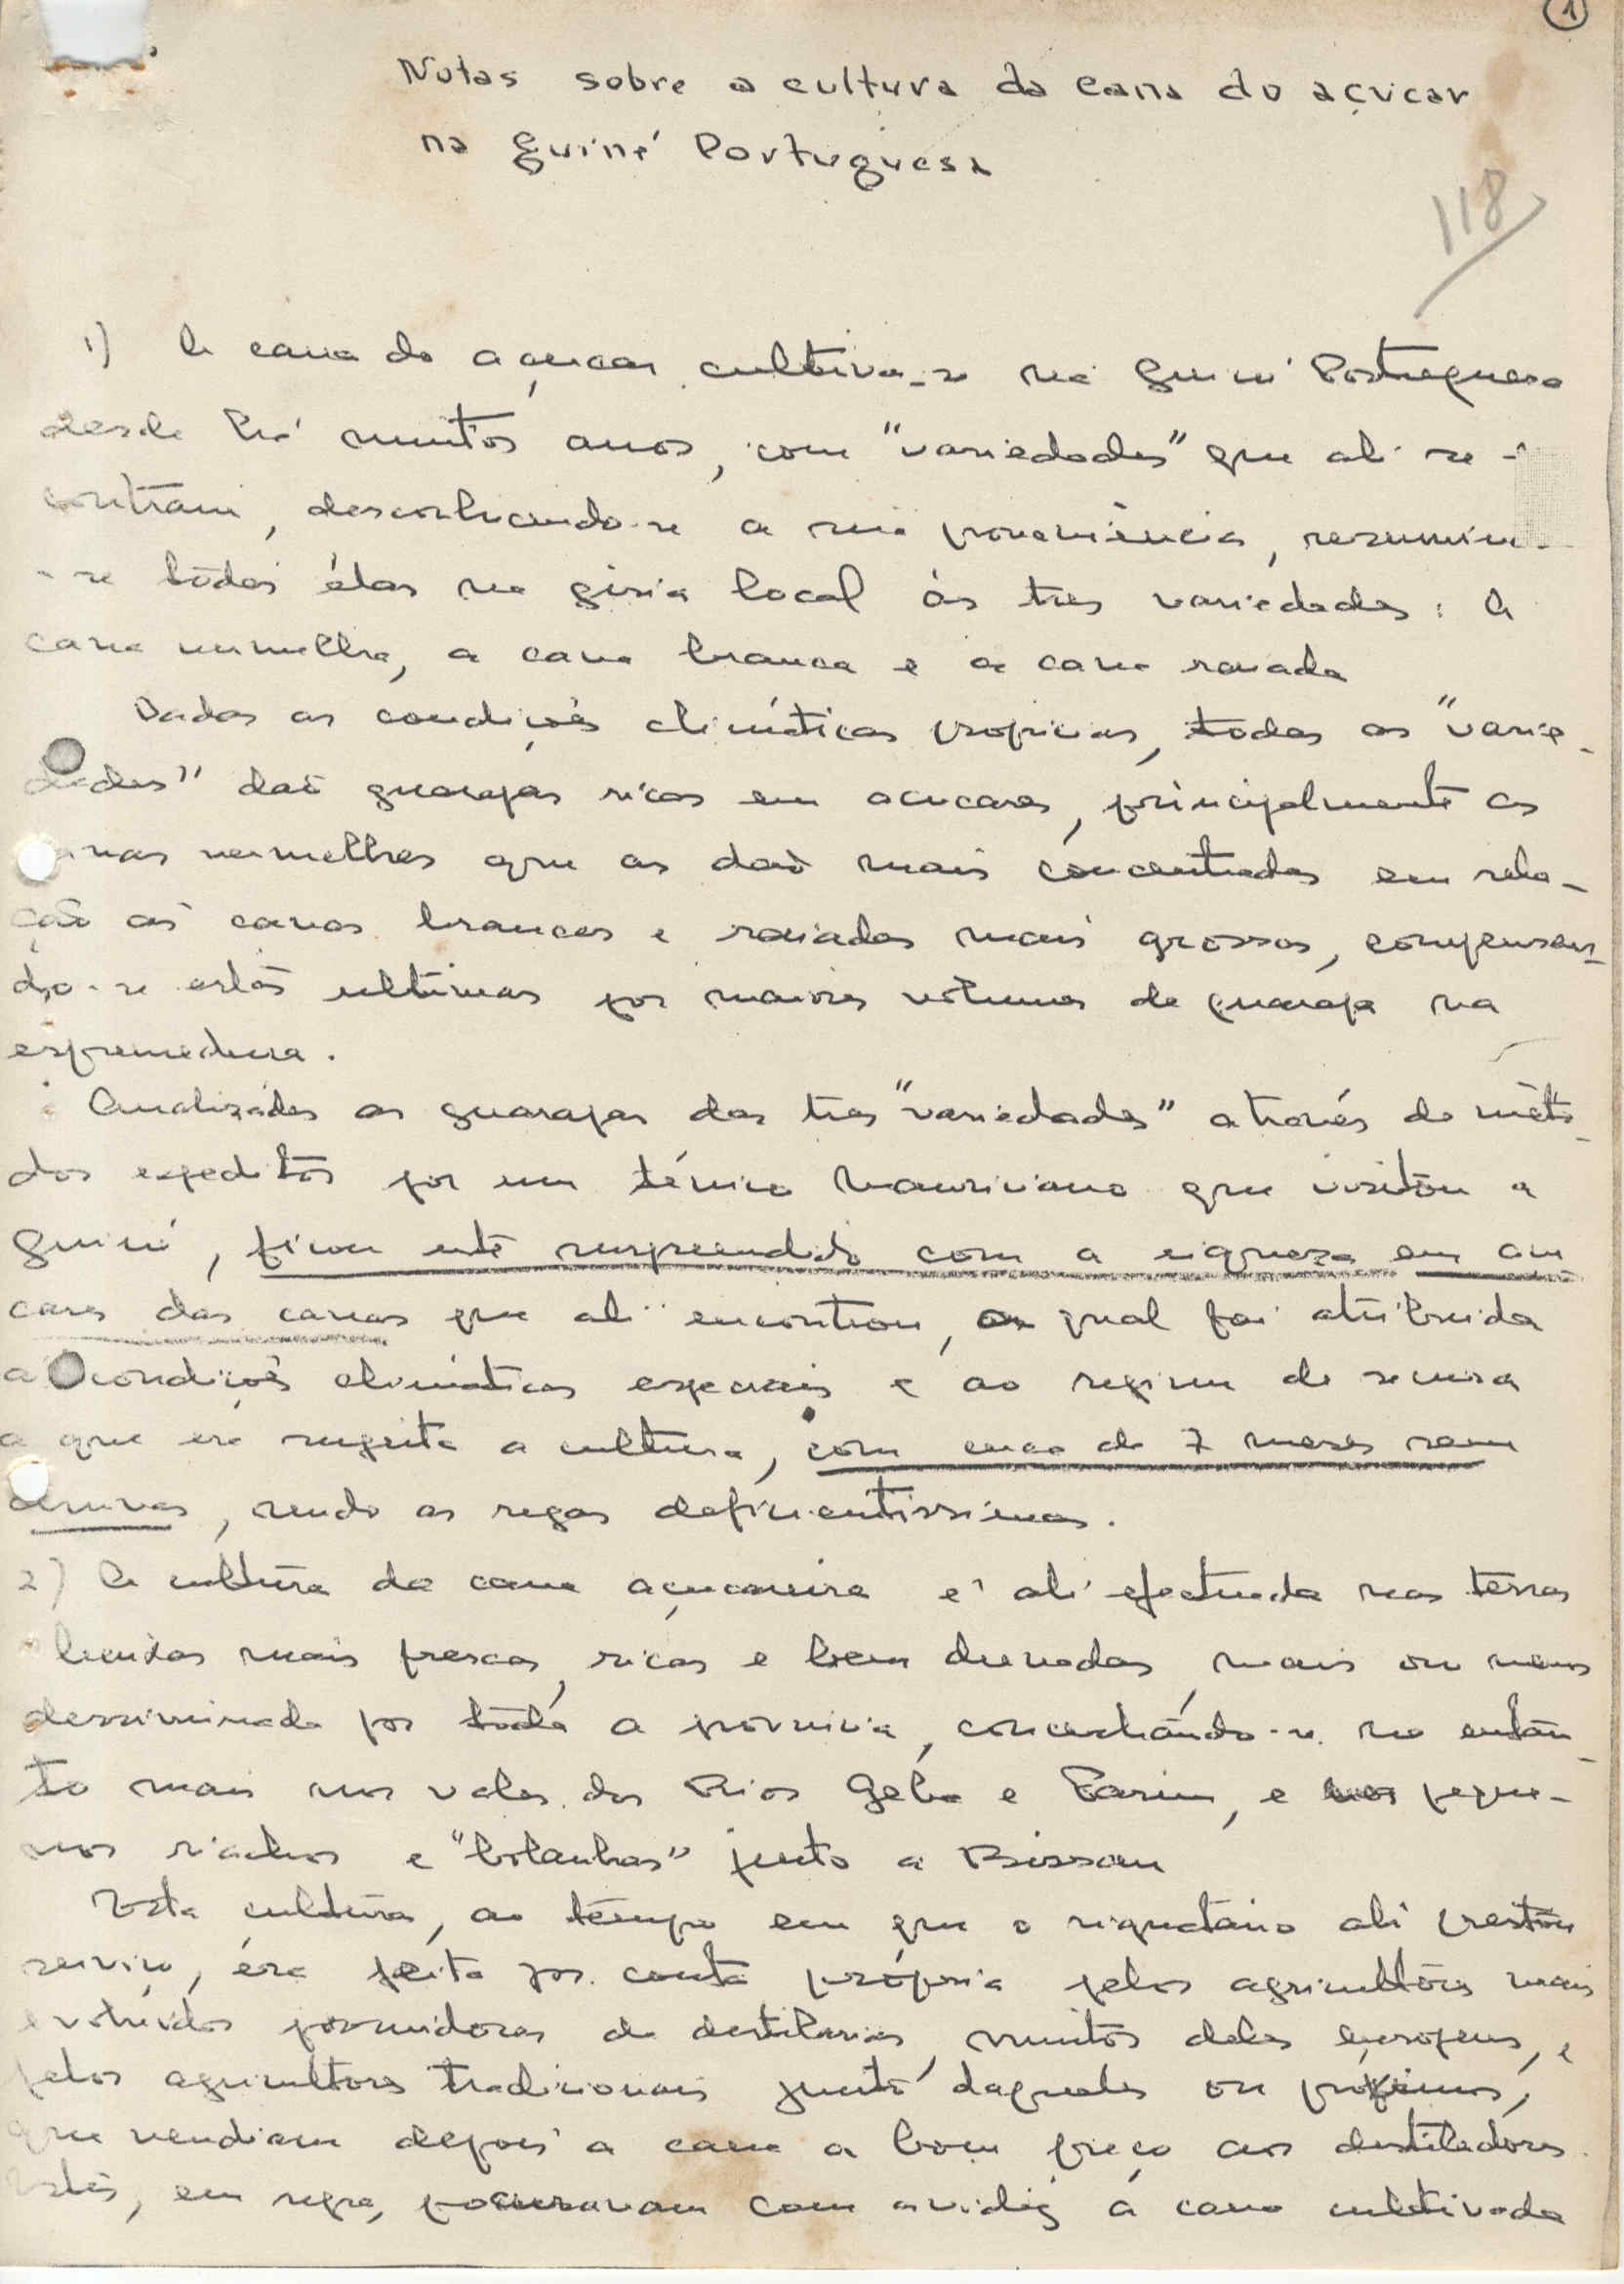 1
Notas sobre a cultura da cana do açucar
na Guiné Portuguesa
118
1) A cana do açucar cultiva-se na Guiné Portuguesa
desde há muitos anos, com "variedades" que ali se
contram, desconhecendo-se a sua proveniência, resumin-
-se todas élas na giria local ás tres variedades: A
cana vermelha, a cana branca e a cana raiada
Dadas as condições climáticas propicias, todas as "varie-
dades" dão guarapas ricas em açucares, principalmente as
canas vermelhas que as dão mais concentradas em rela-
ção ás canas brancas e raiadas mais grossas, compensan-
do-se estas ultimas por maiores volumes de guarapa na
espremedura.
Analizádas as guarapas das tres "variedades" através de méto-
dos expeditos por um técnico mauriciano que visitou a
Guiné, ficou este surpreendido com a riqueza em açu
cares das canas que ali encontrou, a qual foi atribuida
a condições climáticas especiais e ao regime de secura
a que era sugeita a cultura, com cerca de 7 meses sem
chuvas, sendo as regas deficientissimas.
2) A cultura da cana açucareira é ali efectuada nas terras
humidas mais frescas, ricas e bem drenadas, mais ou menos
desseminada por toda a provincia, concentrándo-se no entan-
to mais nos vales dos Rios Geba e Farim, e nos peque-
nos riachos e "bolanhas" junto a Bissau
Esta cultura, ao tempo em que o signatário ali prestou
serviço, éra feita por conta própria pelos agricultores mais
evoluidos possuidores de destilarias, muitos deles europeus, e
pelos agricultores tradicionais junto daqueles ou próximos,
que vendiam depois a cana a bom preço aos destiladores.
Estes, em regra, procuravam com avidez a cana cultivada